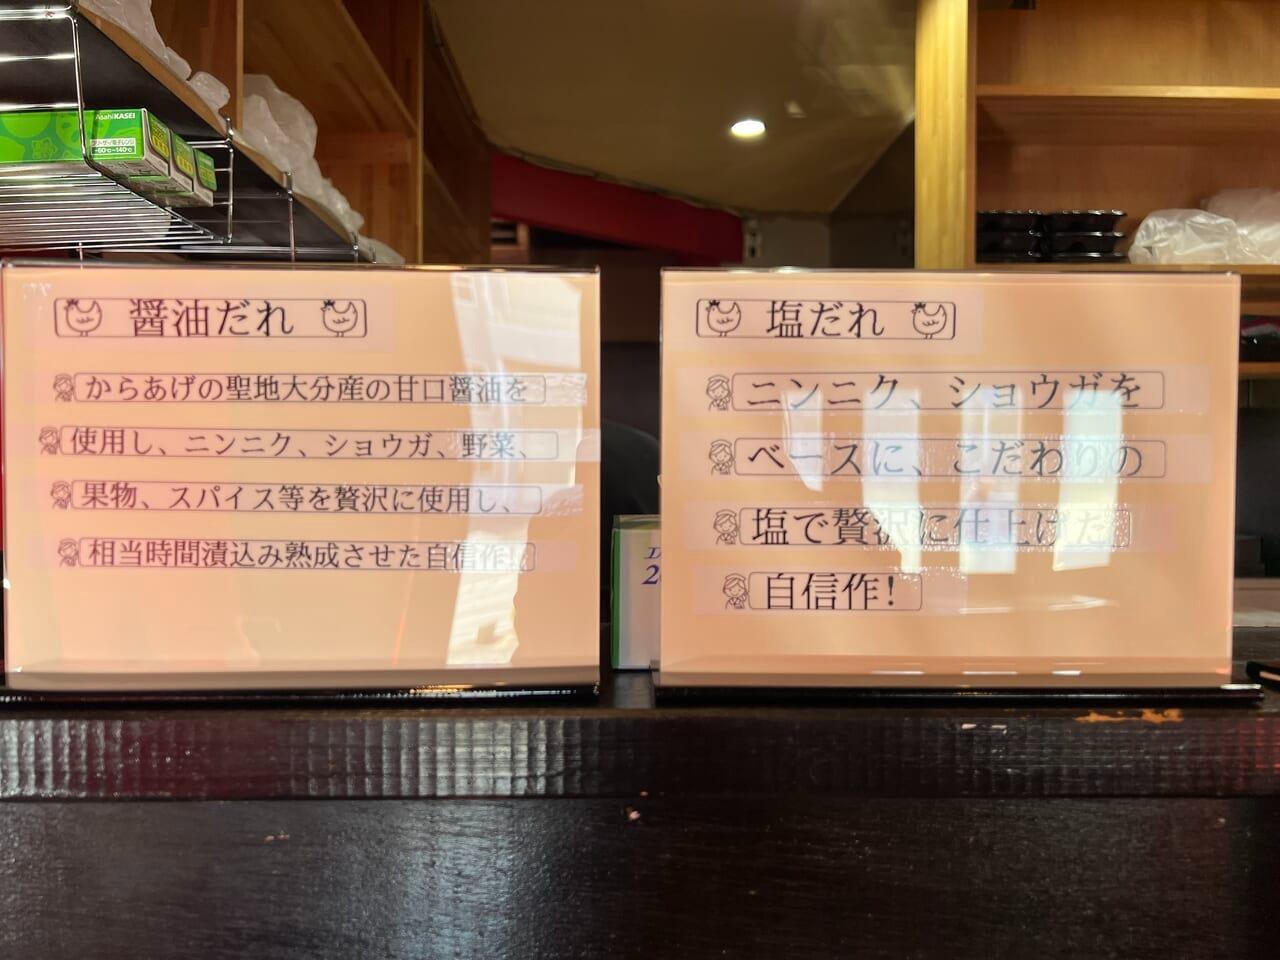 AsahiKASEI
-60℃~140℃
醤油だれ
からあげの聖地大分産の甘口醤油を
使用し、ニンニク、ショウガ、野菜、
果物、スパイス等を贅沢に使用し、
相当時間漬込み熟成させた自信作!
塩だれ
ニンニク、ショウガを
ベースに、こだわりの
塩で贅沢に仕上げた
自信作!